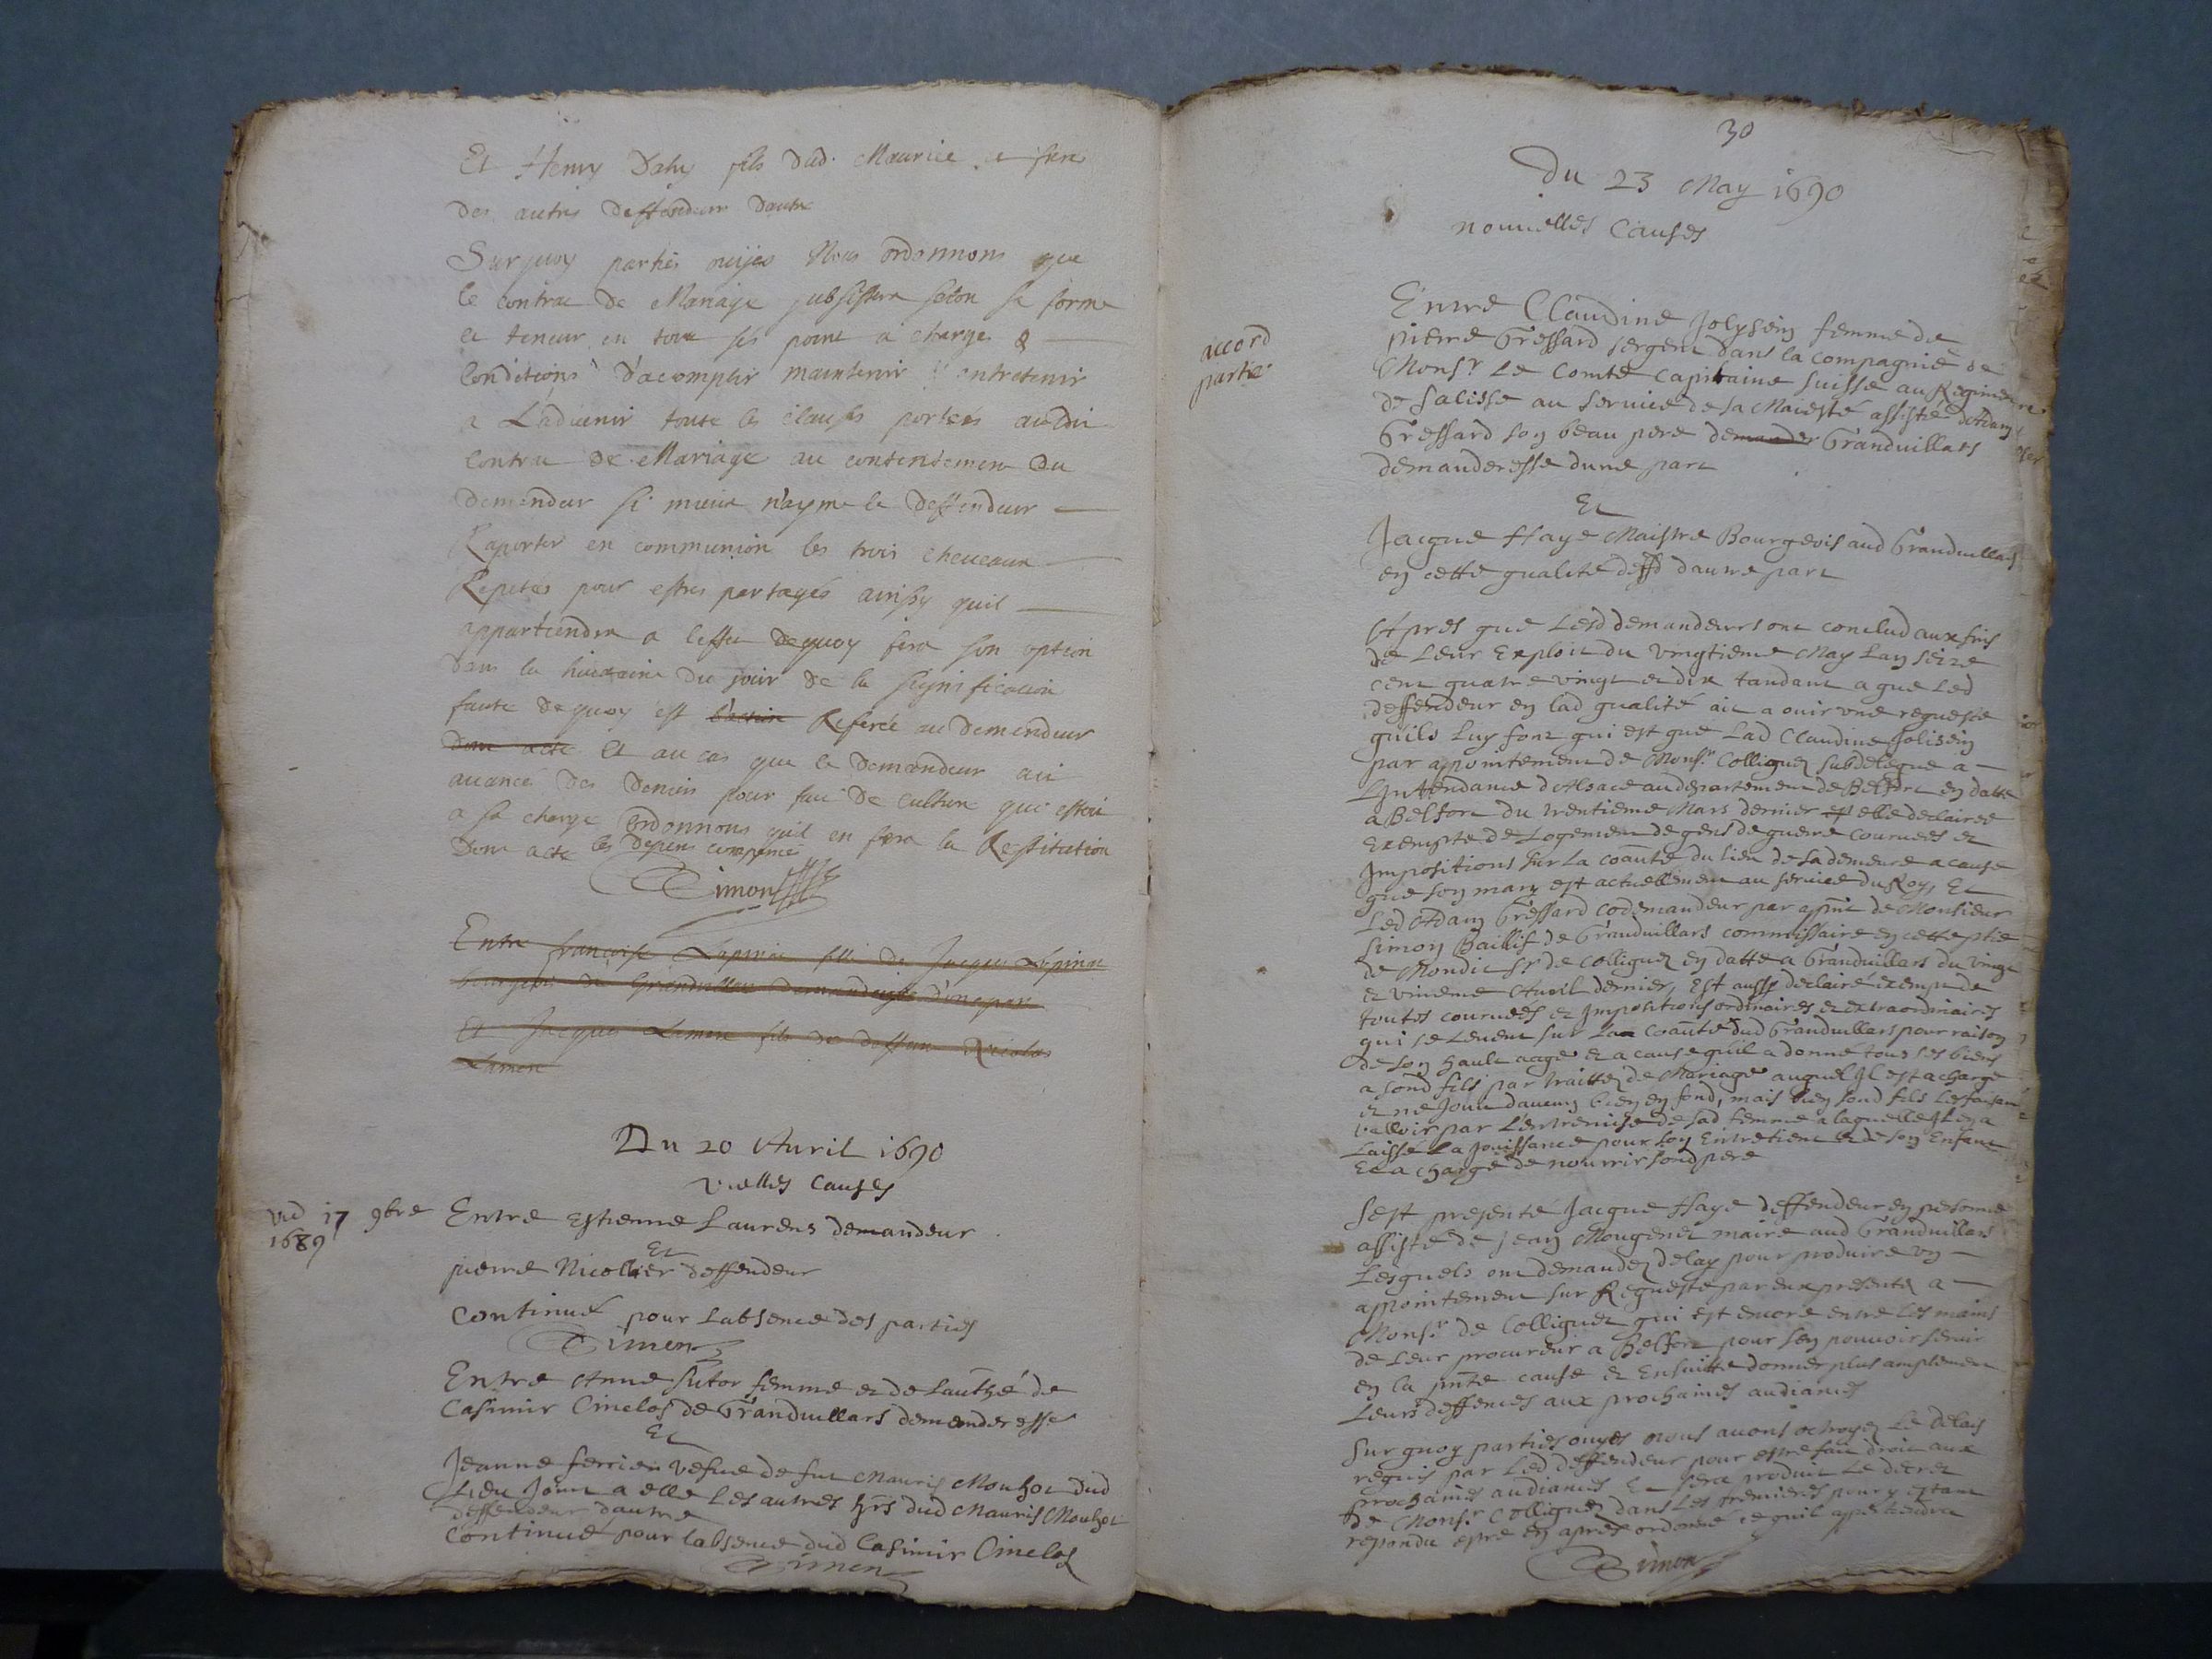 Et Henry fils dud. Maurice et frere
des autres deffendeur dautre
Surquoy parties ouyes Nous ordonnons que
le contrac de Mariage subsistera selon sa forme
et teneur en tous ses point a charges &
Conditions d'acomplir maintenir entretenir
a L'aduenir toute les clauses portees audit
contrac de Mariage au contentement du
Demendeur si mieux n'ayme le deffendeur
Raporter en communion les trois cheueaux
Repetés pour estres partagés ainssy quil
appartiendra a leffet dequoy fera son option
dans la huictaine du jour de la signification
faute dequoy est Referée au demendeur
Donc acte Et au cas que le Demandeur ait
auancé des deniers pour fait de culture qui estoit
a sa charge ordonnons quil en fera la Restitution
Dont acte les depens compencé
Simon
Entre francoise Lapine fille de Jacques Lapine
bourgeois de Grandvillar demanderesse d'une part
Et Jacques Lamere fils de deffunt Nicolas
Lamere
Du 20 Auril 1690
vielles Causes
vid 17 9bre
1689
Entre Estienne Laurens demandeur
Et
pierre Nicollier deffendeur
Continué pour Labsence des parties
Simon
Entre Anne Sutor femme et de Lauthé de
Casimir Cinelos de Granduillars demanderesse
Et
Jeanne ferrier vefue de fut Mauris Mouhot dud
Lieu Joint a elle Les autres hrs dud Mauris Mouhot
deffendeur dautre
Continué pour labsence dud Casimir Cinelos
Simon
30
Du 23 May 1690
nouuelles Causes
accord
partie
Entre Claudine Jolysein femme de
pierre Gressard sergent dans la compagnie de
Monsr Le Comte Capitaine Suisse au Regiment
de Salisse au seruice de sa Maiesté assisté dAdam
Gressard son beau pere demander Granduillars
demanderesse dune part
Et
Jacque Haye Maistre Bourgeois aud Granduillars
en cette qualité deffd dautre part
Apres que Lesd demandeurs ont conclud aux fins
de Leur Exploit du vingtieme May Lan seize
cent quatre vingt et dix tandant a que Led
deffendeur en lad qualité ait a ouir une requeste
quils Luy font qui est que Lad Claudine Jolisein
par appointement de Monsr Colliquez subdelegué a
LIntendance d'Alsace au departement de Belfort en datte
a Belfort du trentieme Mars dernier est elle declairee
Exempte de Logement de gens de guerre couruées et
Impositions sur La coauté du lieu de sa demeure a cause
que son mary est actuellement au seruice du Roy, Et
Led Adam Gressard codemandeur par appnt de Monsieur
Simon Baillif de Granduillars commissaire en cette ptie
de Mondit Sr de Colliquez en datte a Granduillars du vingt
et unieme Auril dernier, Est aussy declairé exempt de
toutes couruées et Impositions ordinaires et extraordinaires
qui se Leuent sur La coauté dud Granduillars pour raison
de son hault aage et a cause quil a donné tous ses biens
a sond fils par traitté de Mariage auquel Il est a charge
et ne Jouit daucun bien en fond, mais bien sond fils Les faisant
valloir par L'entremise de sad femme a laquelle Il en a
Laissé La Jouissance pour son Entretient et de son Enfant
Et a charge de nourrir sond pere
Sest presenté Jacque Haye deffendeur en personne
assisté de Jean Mougenet maire aud Granduillars
Lesquels ont demandez delay pour produire un
appointement sur Requeste par eux presenté a
Monsr de Colliquet qui est encore entre les mains
de Leur procureur a Belfort pour sen pouuoir seruir
en la pnte cause et Ensuitte donner plus amplement
Leurs deffences aux prochaines audiances
Surquoy parties ouyes nous auons octroyez Le delais
requis par Led deffendeur pour estre fait droit aux
prochaines audiances Et sera produit Le decret
de Monsr Colliquez dans Les premieres pour y estant
repondu estre en apres ordonné ce quil appartiendra
Simon